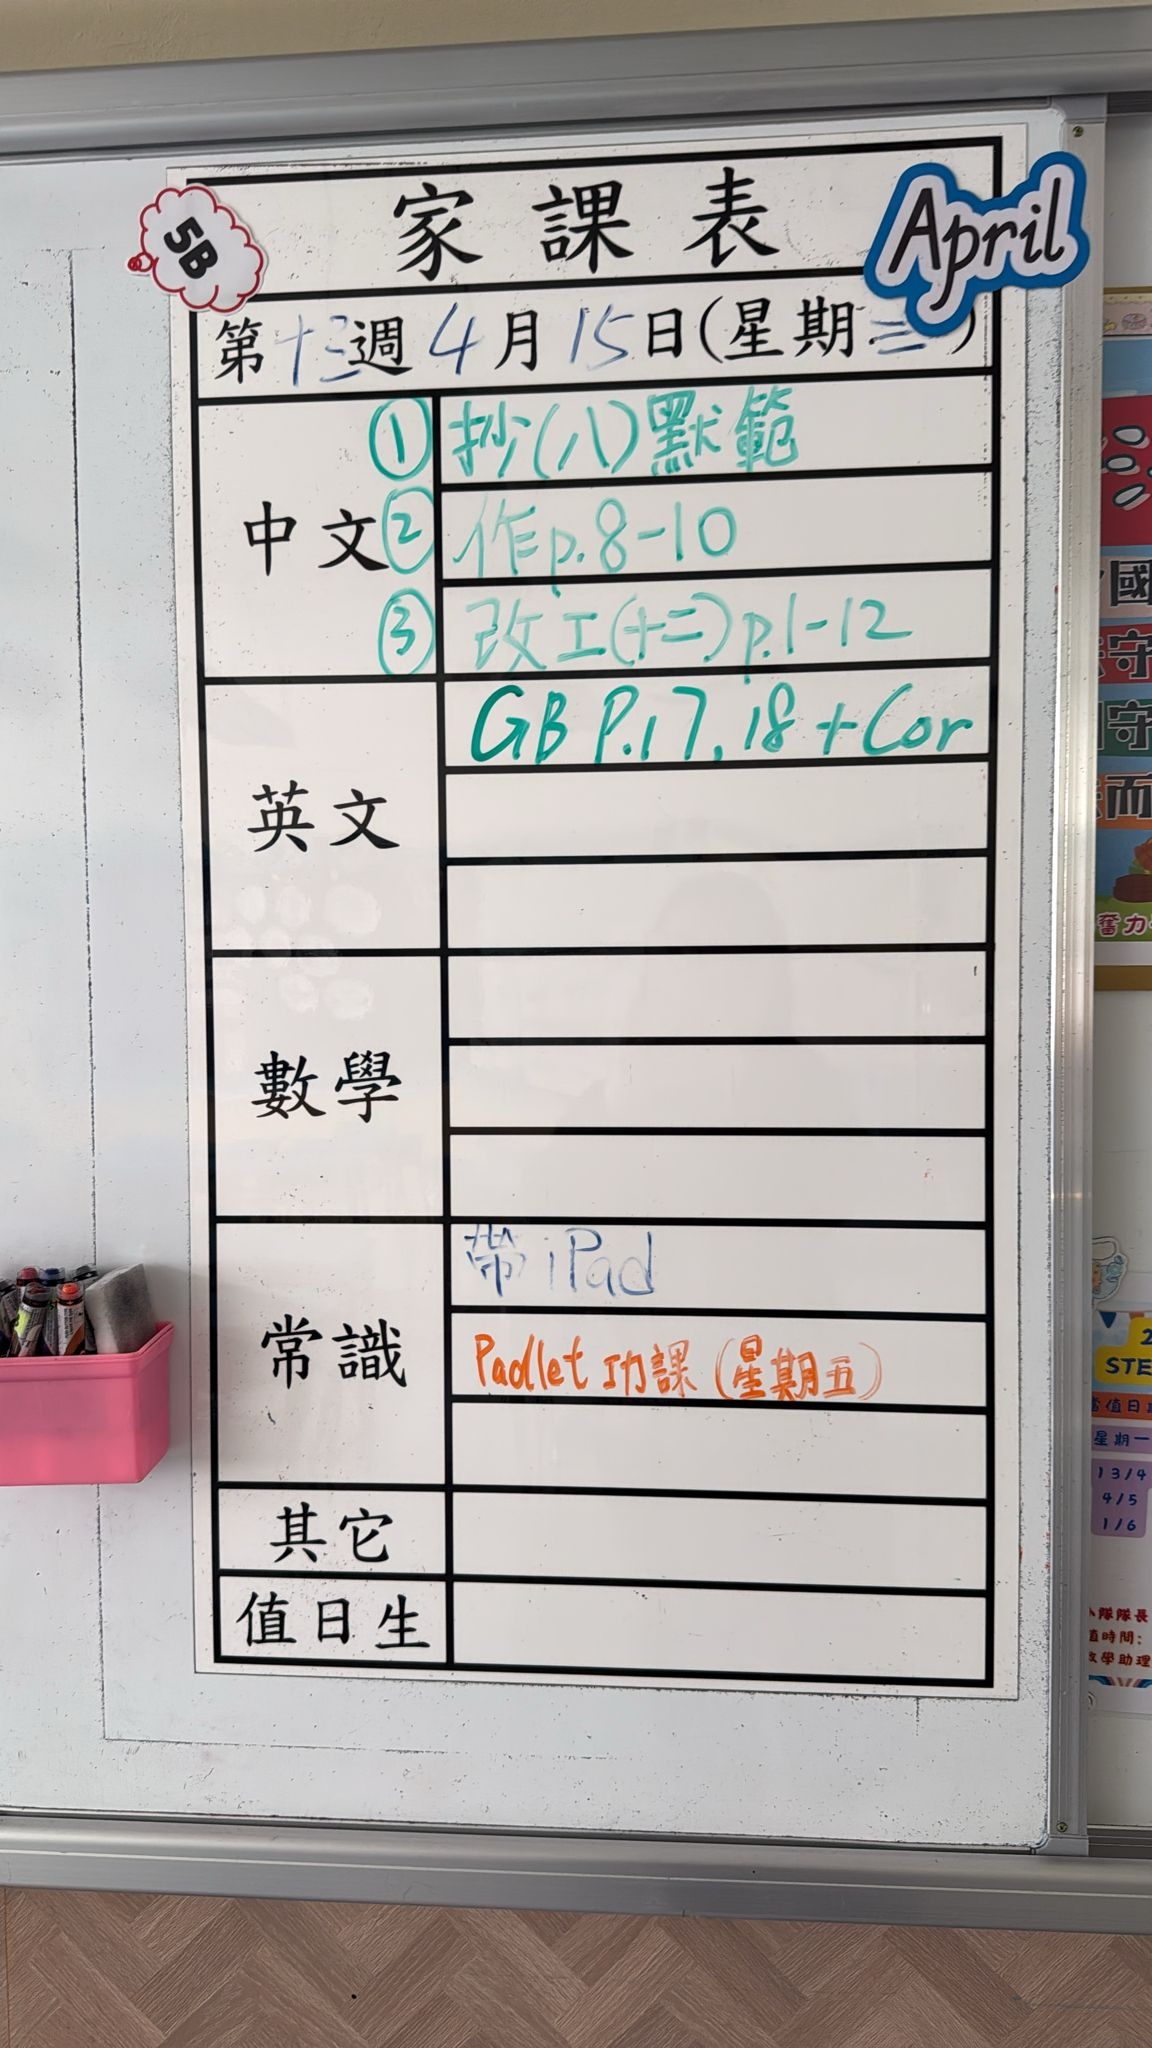 家課表
5B
April
第十三週4月15日(星期三)
中文
① 抄(八)默範
② 作p.8-10
③ 改工(十二)p.1-12
英文
GB P.17,18+Cor
數學
常識
帶iPad
Padlet功課(星期五)
其它
值日生
國
守
守
而
奮力
2
STE
當值日
星期一
13/4
4/5
1/6
隊隊長
值時間:
教學助理